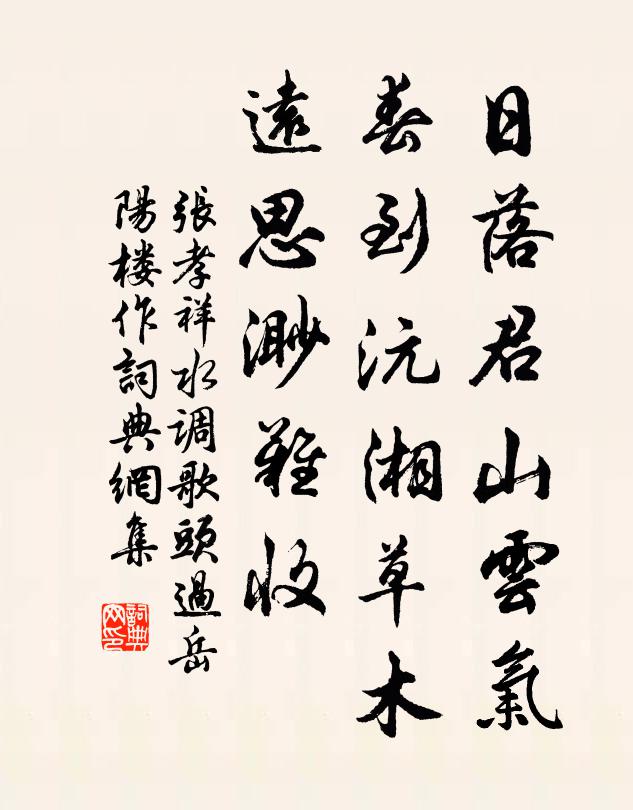 日落君山雲氣
春到沅湘草木
遠思渺難收
張孝祥水调歌頭過岳
陽楼作詞典網集
詞典網印